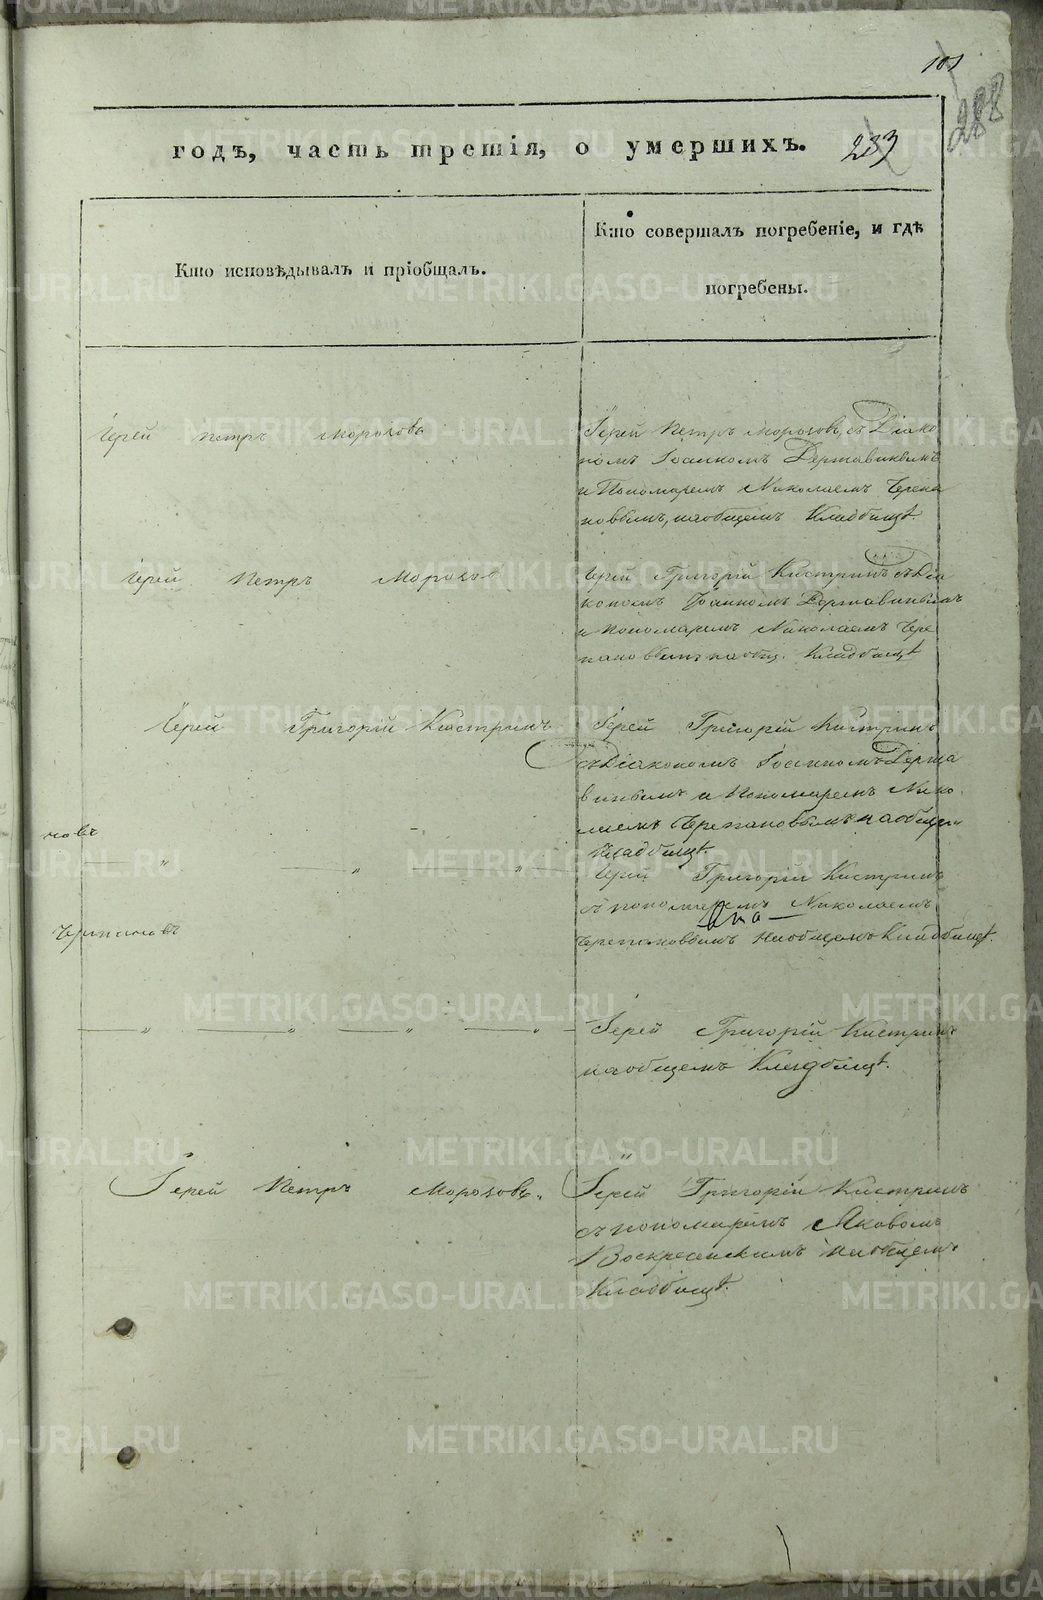 101
288
годъ, часть третія, о умершихъ. 233
Кто исповѣдывалъ и пріобщалъ.
Кто совершалъ погребеніе, и гдѣ
погребены.
Іерей Петръ Морозовъ
Іерей Петръ Морозовъ, съ Діако
номъ Іоанномъ Державинымъ
и Пономаремъ Николаемъ Черепа
новымъ, на общемъ Кладбищѣ.
Іерей Петръ Морозовъ
Іерей Григорій Кистринъ съ Діа
кономъ Іоанномъ Державинымъ
и Пономаремъ Николаемъ Чере
пановымъ на общ. Кладбищѣ
Іерей Григорій Кистринъ
Іерей Григорій Кистринъ
съ Діакономъ Іоанномъ Держа
винымъ и Пономаремъ Нико
лаемъ Черепановымъ на общем
Кладбищѣ.
новъ
— „ — „ — „
Іерей Григорій Кистринъ
съ пономаремъ Николаемъ
Черепановъ
Черепановымъ на общемъ Кладбищѣ.
— „ — „ — „ — „ —
Іерей Григорій Кистринъ
на общемъ Кладбищѣ.
Іерей Петръ Морозовъ.
Іерей Григорій Кистринъ
съ пономаремъ Яковомъ
Воскресенскимъ на общемъ
Кладбищѣ.
METRIKI.GASO-URAL.RU